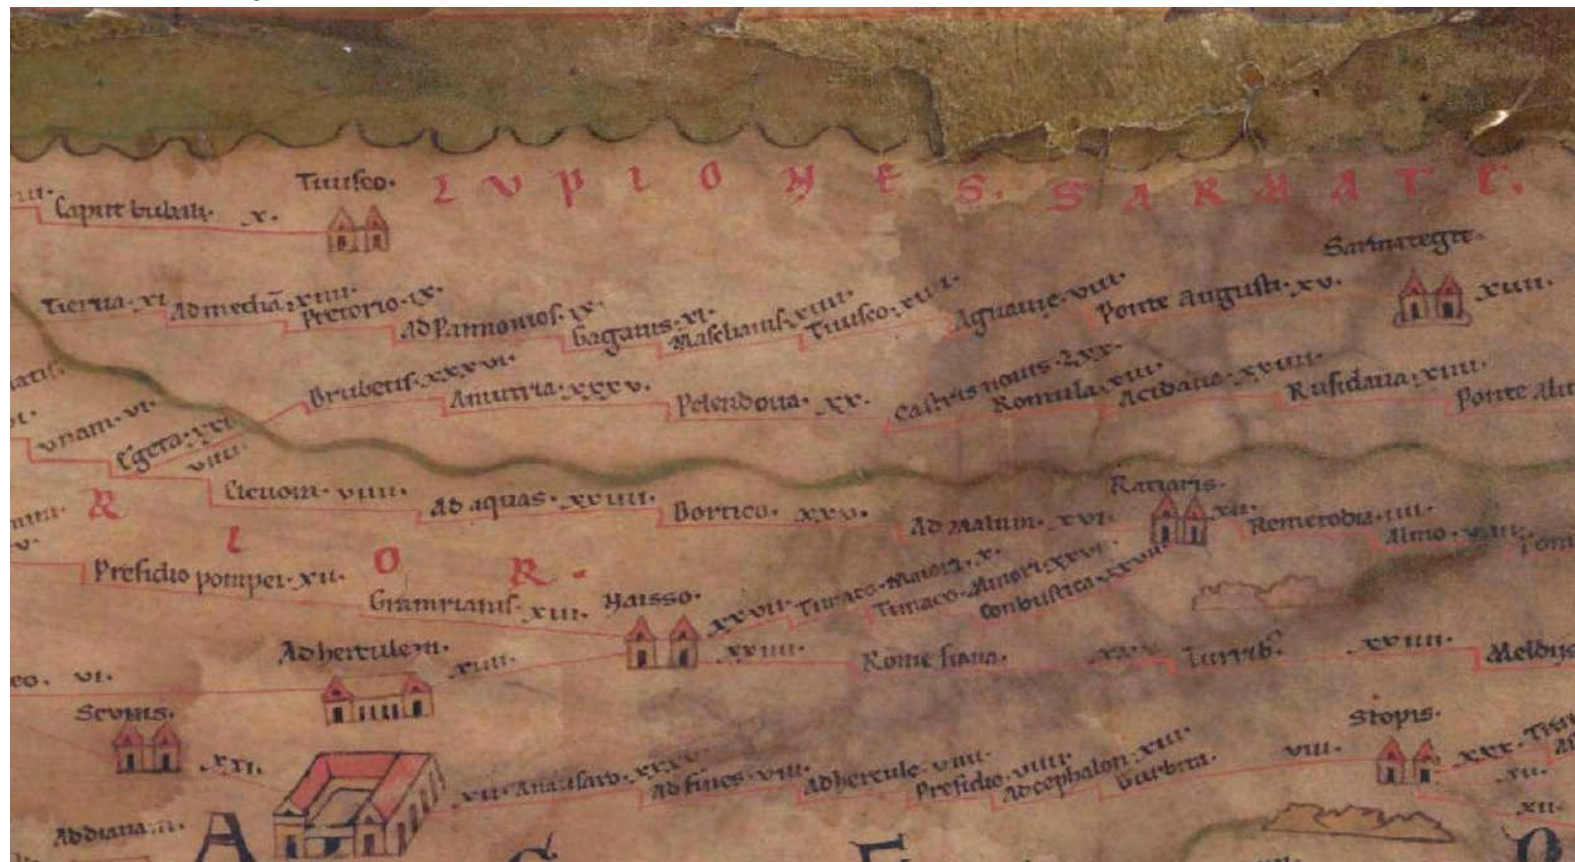 Tiuisco.
LUPIONES. SARMATE.
Capite bubali. X.
Sarmategte.
Tierua. XI. Admediā. XIIII. Pretorio. IX. AdPannonios. IX. Gaganis. XI. Masclianis. XIIII. Tiuisco. XIIII. Agnauie. VIII. Ponte Augusti. XV. XIIII.
Brubetis. XXXVI. Amutria. XXXV. Pelendoua. XX. Castris nouis. LXX. Romula. XIII. Acidaua. XXIIII. Rusidaua. XIIII. Ponte Alu
unam. VI. Egeta. XXI.
VIIII.
Clenoua. VIIII. Ad aquas. XXIIII. Dortico. XXV. Ad Malum. XVI. Ratiaris. XII. Remetodia. VIIII. Almo. VIIII. Pom
R I O R.
Presidio pompei. XII. Gramrianis. XIII. Naisso. XXVII. Timaco. Maiori. X. Timaco. Minori. XXVII. Conbustica. XXVII.
XXIIII. Romesiana. XXV. Turrib. XXVIII. Meldiis
VI. Adherculem. XIIII.
Scupis. XXI.
XII. Anausaro. XXXV. Ad fines. VIII. Adhercule. VIIII. Presidio. VIIII. Adcephalon. XIII. Gurbita. VIII. Stopis. XXX.
XII.
XII.
Addianam.